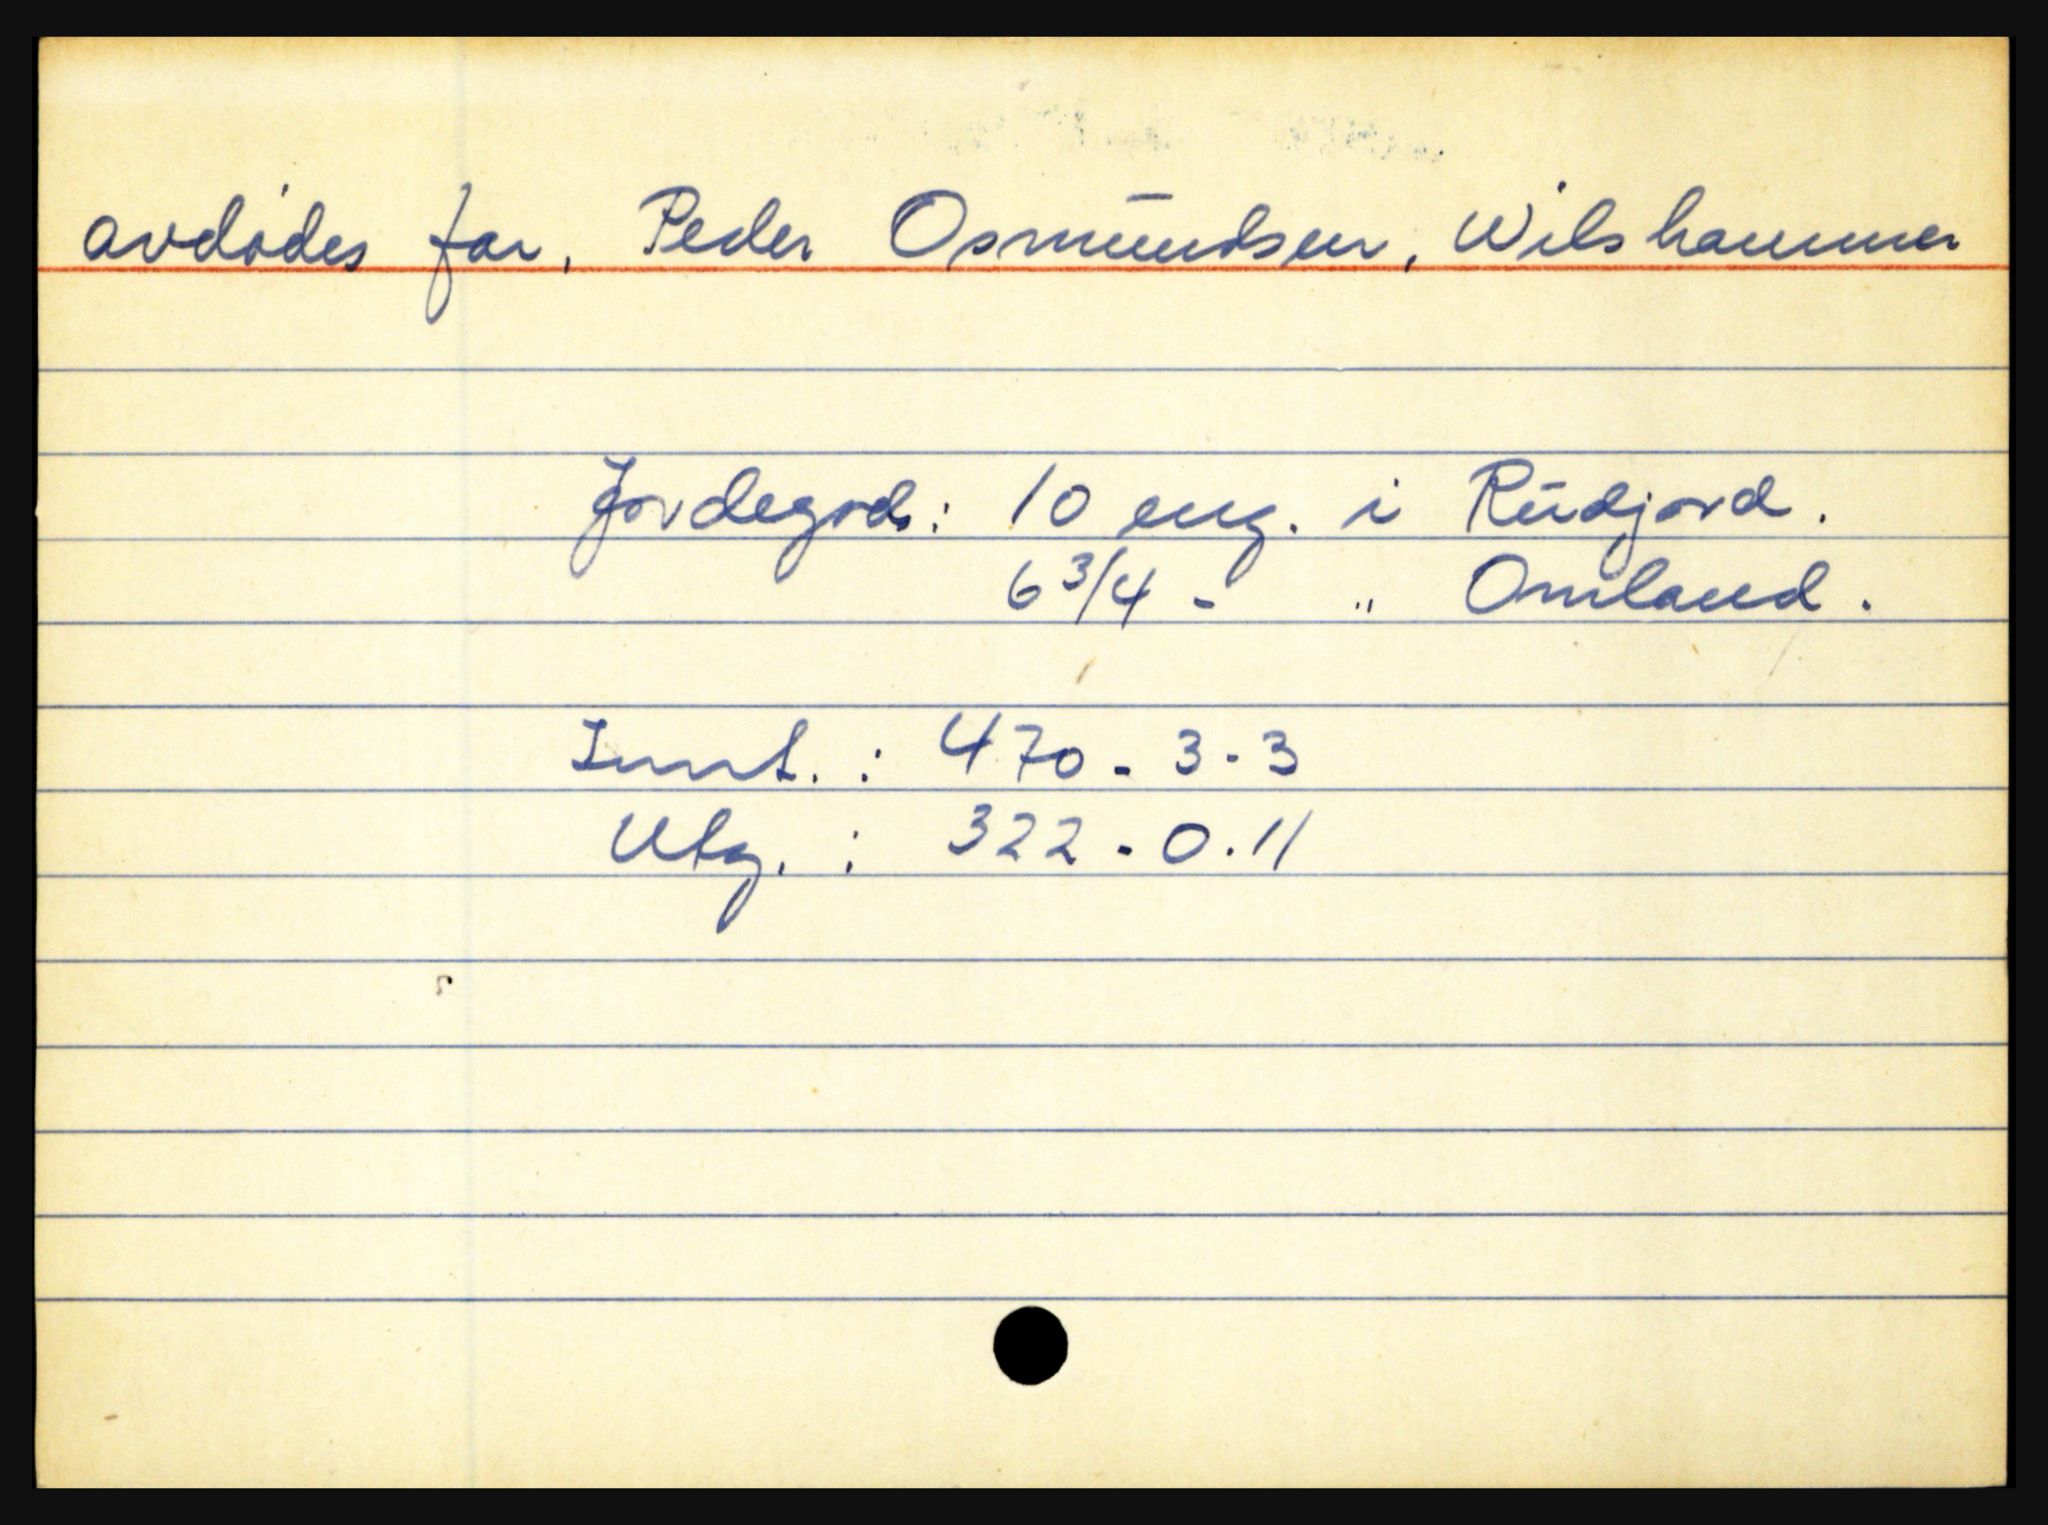 avdødes far, Peder Osmundsen, Wilshammer
Jordegods: 10 eng. i Rudjord.
6 3/4 - " Omland.
Innt. : 470 - 3 - 3
Utg. : 322 - 0 . 11